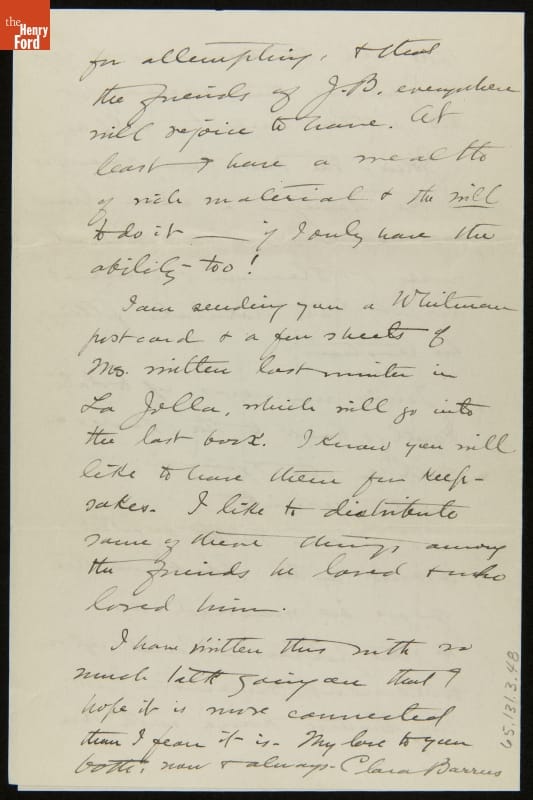 the
Henry
Ford
for attempting, & that
the friends of J.B. everywhere
will rejoice to have. At
least I have a wealth
of rich material & the will
to do it — if I only have the
ability - too!
I am sending you a Whitman
postcard & a few sheets of
Ms. written last winter in
La Jolla, which will go into
the last book. I know you will
like to have them for keep-
sakes. I like to distribute
some of these things among
the friends he loved & who
loved him.
I have written this with so
much talk going on that I
hope it is more connected
than I fear it is - My love to you
both, now & always - Clara Barrus
65.131.3.48